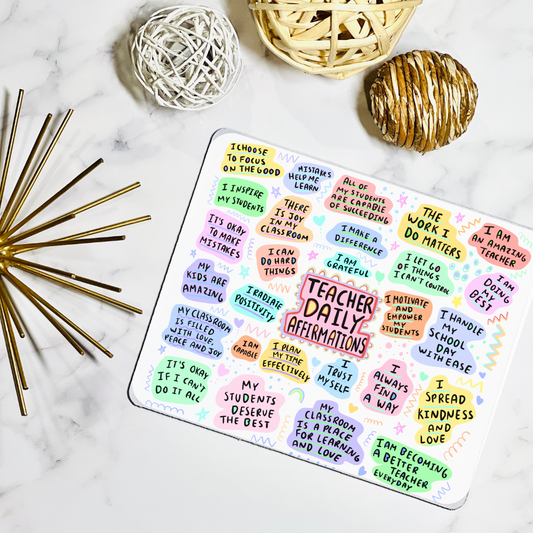 I CHOOSE
TO FOCUS
ON THE GOOD
MISTAKES
HELP ME
LEARN
ALL OF
MY STUDENTS
ARE CAPABLE
OF SUCCEEDING
THE
WORK I
DO MATTERS
I AM
AN AMAZING
TEACHER
I INSPIRE
MY STUDENTS
THERE
IS JOY
IN MY
CLASSROOM
I MAKE A
DIFFERENCE
I LET GO
OF THINGS
I CAN'T CONTROL
I AM
DOING
MY
BEST
IT'S OKAY
TO MAKE
MISTAKES
I CAN
DO HARD
THINGS
I AM
GRATEFUL
MY
KIDS ARE
AMAZING
I RADIATE
POSITIVITY
TEACHER
DAILY
AFFIRMATIONS
I MOTIVATE
AND
EMPOWER
MY
STUDENTS
I HANDLE
MY
SCHOOL
DAY
WITH EASE
MY CLASSROOM
IS FILLED
WITH LOVE,
PEACE AND JOY
I AM
CAPABLE
I PLAN
MY TIME
EFFECTIVELY
I
TRUST
MYSELF
I
ALWAYS
FIND A
WAY
I SPREAD
KINDNESS
AND
LOVE
IT'S OKAY
IF I CAN'T
DO IT ALL
MY
STUDENTS
DESERVE
THE BEST
MY
CLASSROOM
IS A PLACE
FOR LEARNING
AND LOVE
I AM BECOMING
A BETTER
TEACHER
EVERYDAY